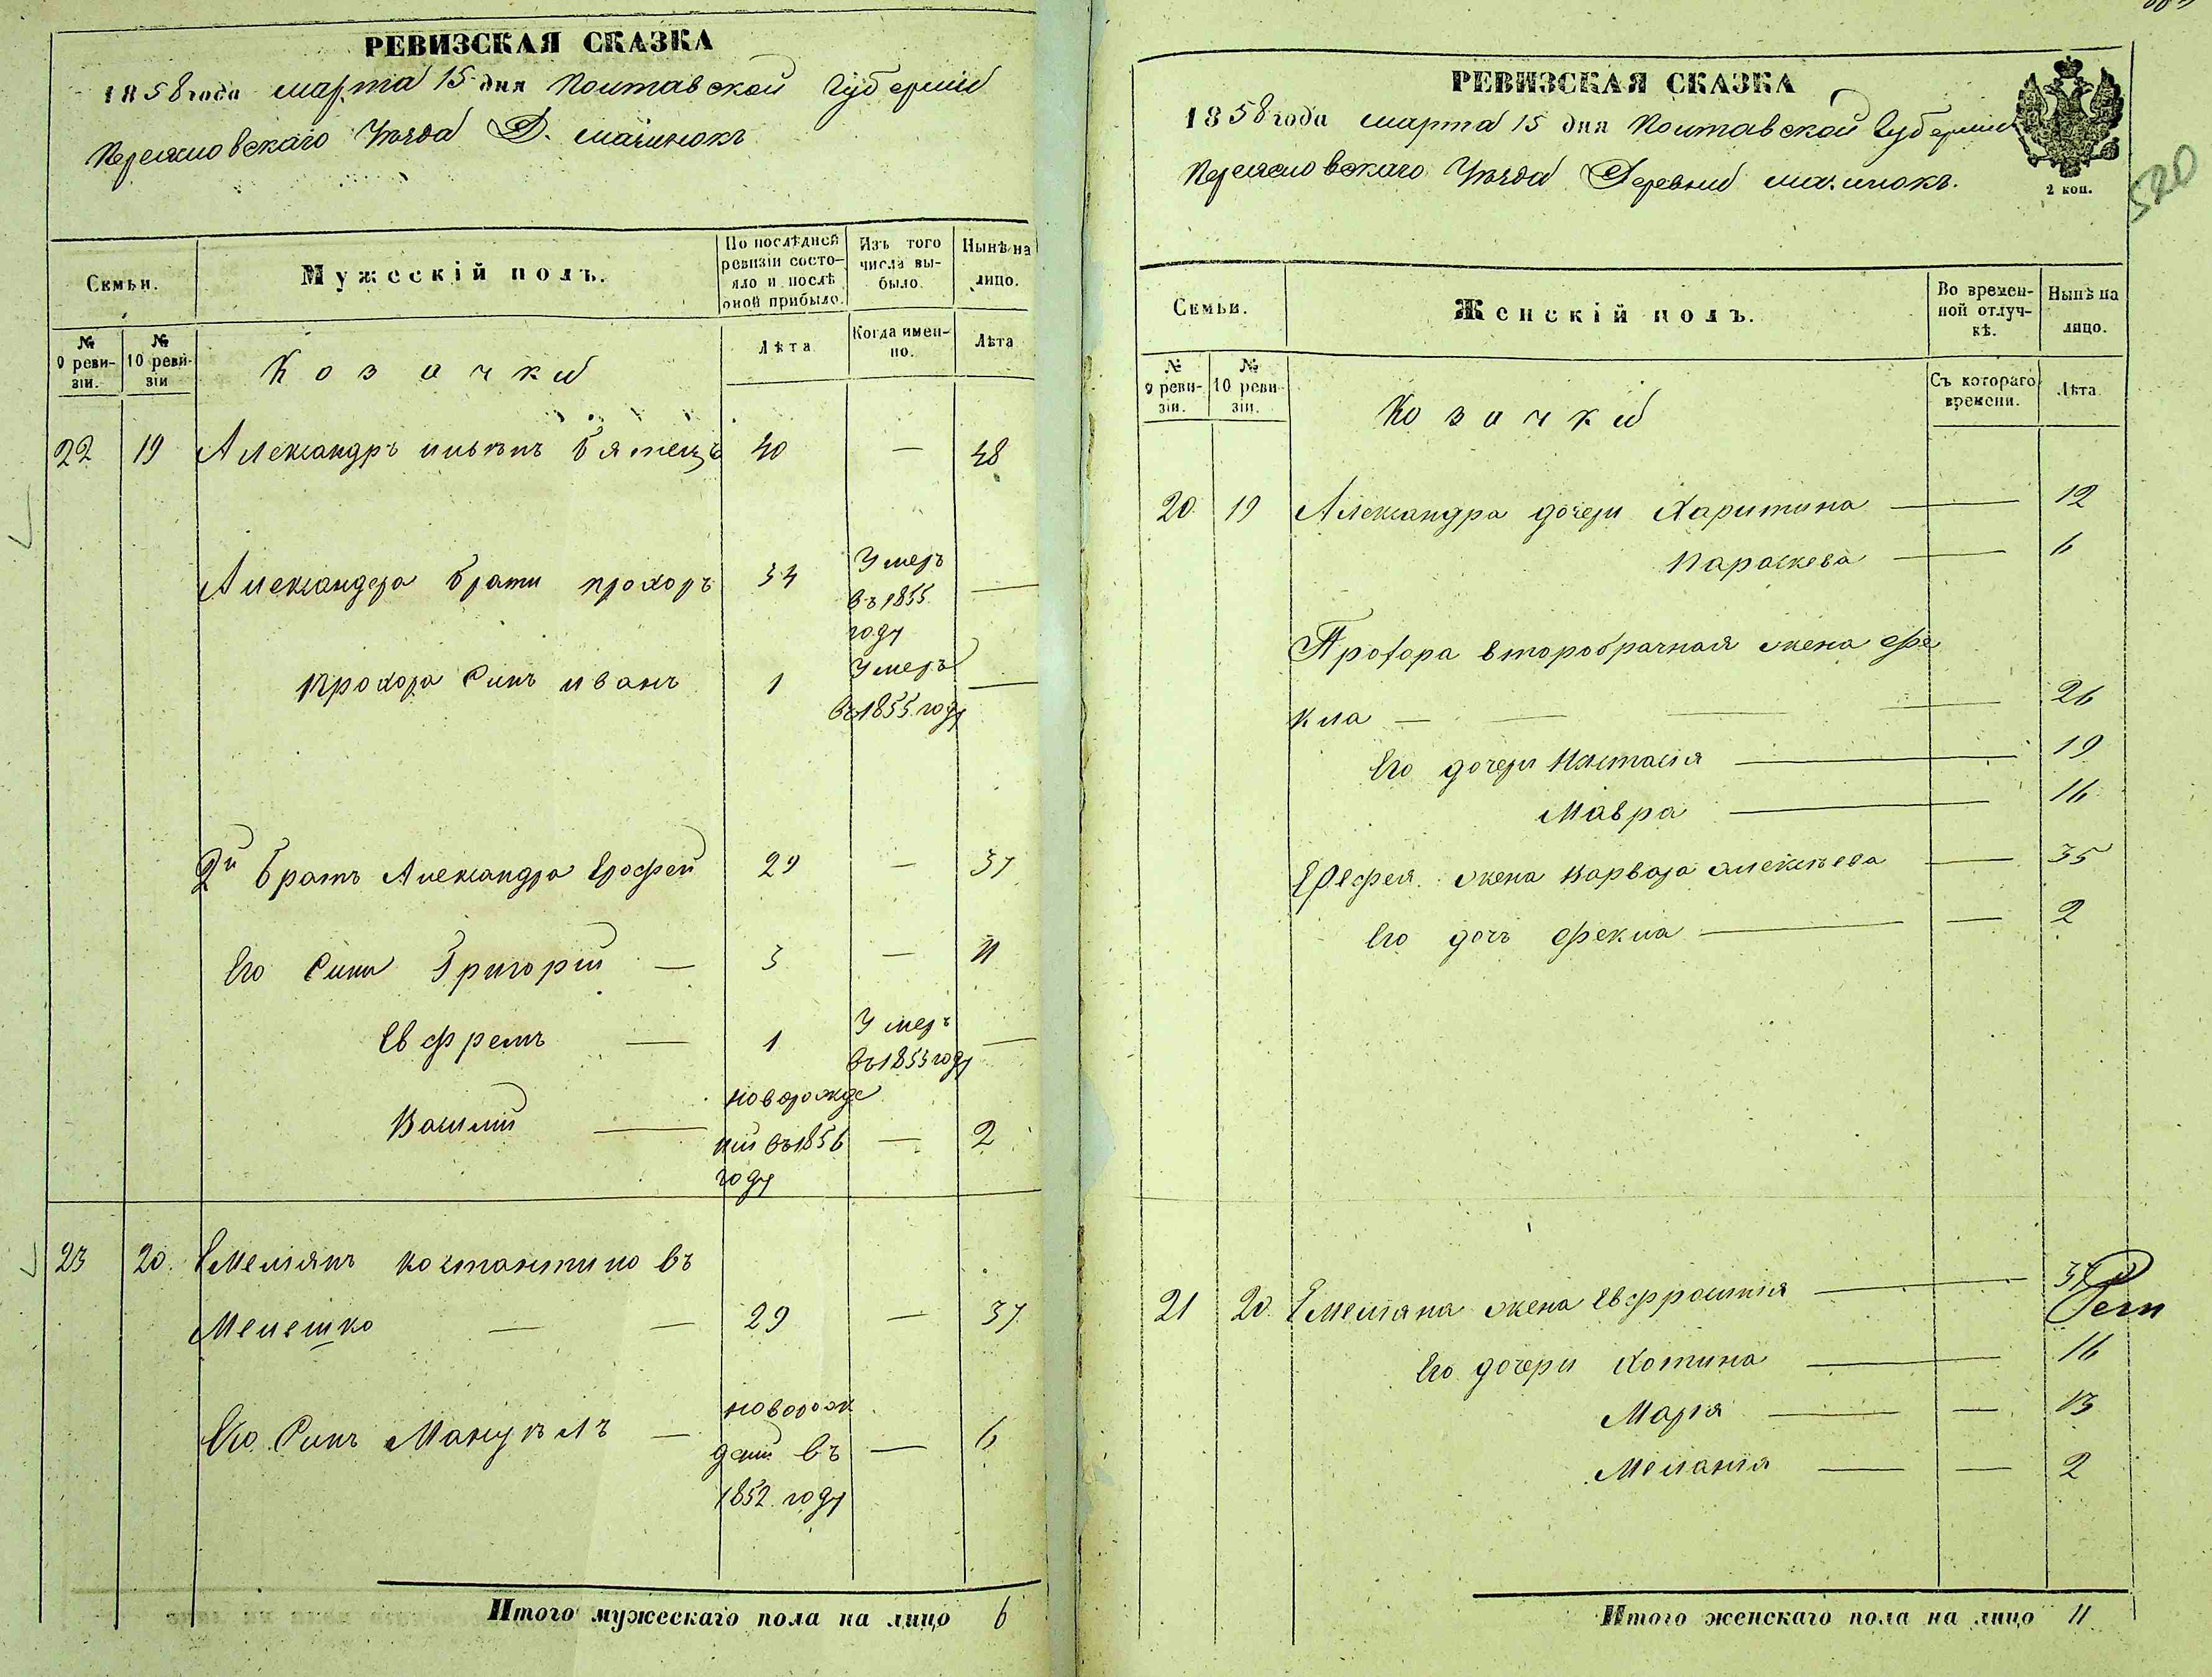 РЕВИЗСКАЯ СКАЗКА
1858 года марта 15 дня Полтавской Губерніи
Переяславскаго Уѣзда Д.
Семьи.
Мужескій полъ.
По послѣдней ревизіи состояло и послѣ оной прибыло.
Изъ того числа выбыло.
Нынѣ на лицо.
№ 9 ревизіи.
№ 10 ревизіи
Козачки
Лѣта
Когда именно.
Лѣта
22 19 Александръ 40 — 48
Александра брати Прохоръ 34 Умеръ въ 1855 году —
Прохора Синъ Иванъ 1 Умеръ въ 1855 году —
2й братъ Александра Ерофей 29 — 37
Его Сини Григорій — 3 — 11
Евфремъ — 1 Умеръ въ 1853 году —
Василій — новорожде
ний въ 1856 — 2
году
23 20. Емелянъ Костантиновъ
Мелешко — — 29 — 37
Его Синъ Мануилъ — новорож
дений въ — 6
1852 году
Итого мужескаго пола на лицо 6
РЕВИЗСКАЯ СКАЗКА
1858 года марта 15 дня Полтавской Губерніи
Переяславскаго Уѣзда Деревни
2 коп.
520
Семьи.
Женскій полъ.
Во временной отлучкѣ.
Нынѣ на лицо.
№ 9 ревизіи.
№ 10 ревизіи.
Козачки
Съ котораго времени.
Лѣта
20. 19 Александра дочери Харитина — 12
Параскева — 6
Прохора второбрачная жена Фе
кла — — — — 26
Его дочери Настасія — 19
Мавра — 16
Ерофея жена Варвара Алексѣева — 35
Его дочь Фекла — — 2
21 20 Емеляна жена Евфросинія — 37
Его дочери Хотина — 16
Марія — — 13
Меланія — — 2
Итого женскаго пола на лицо 11